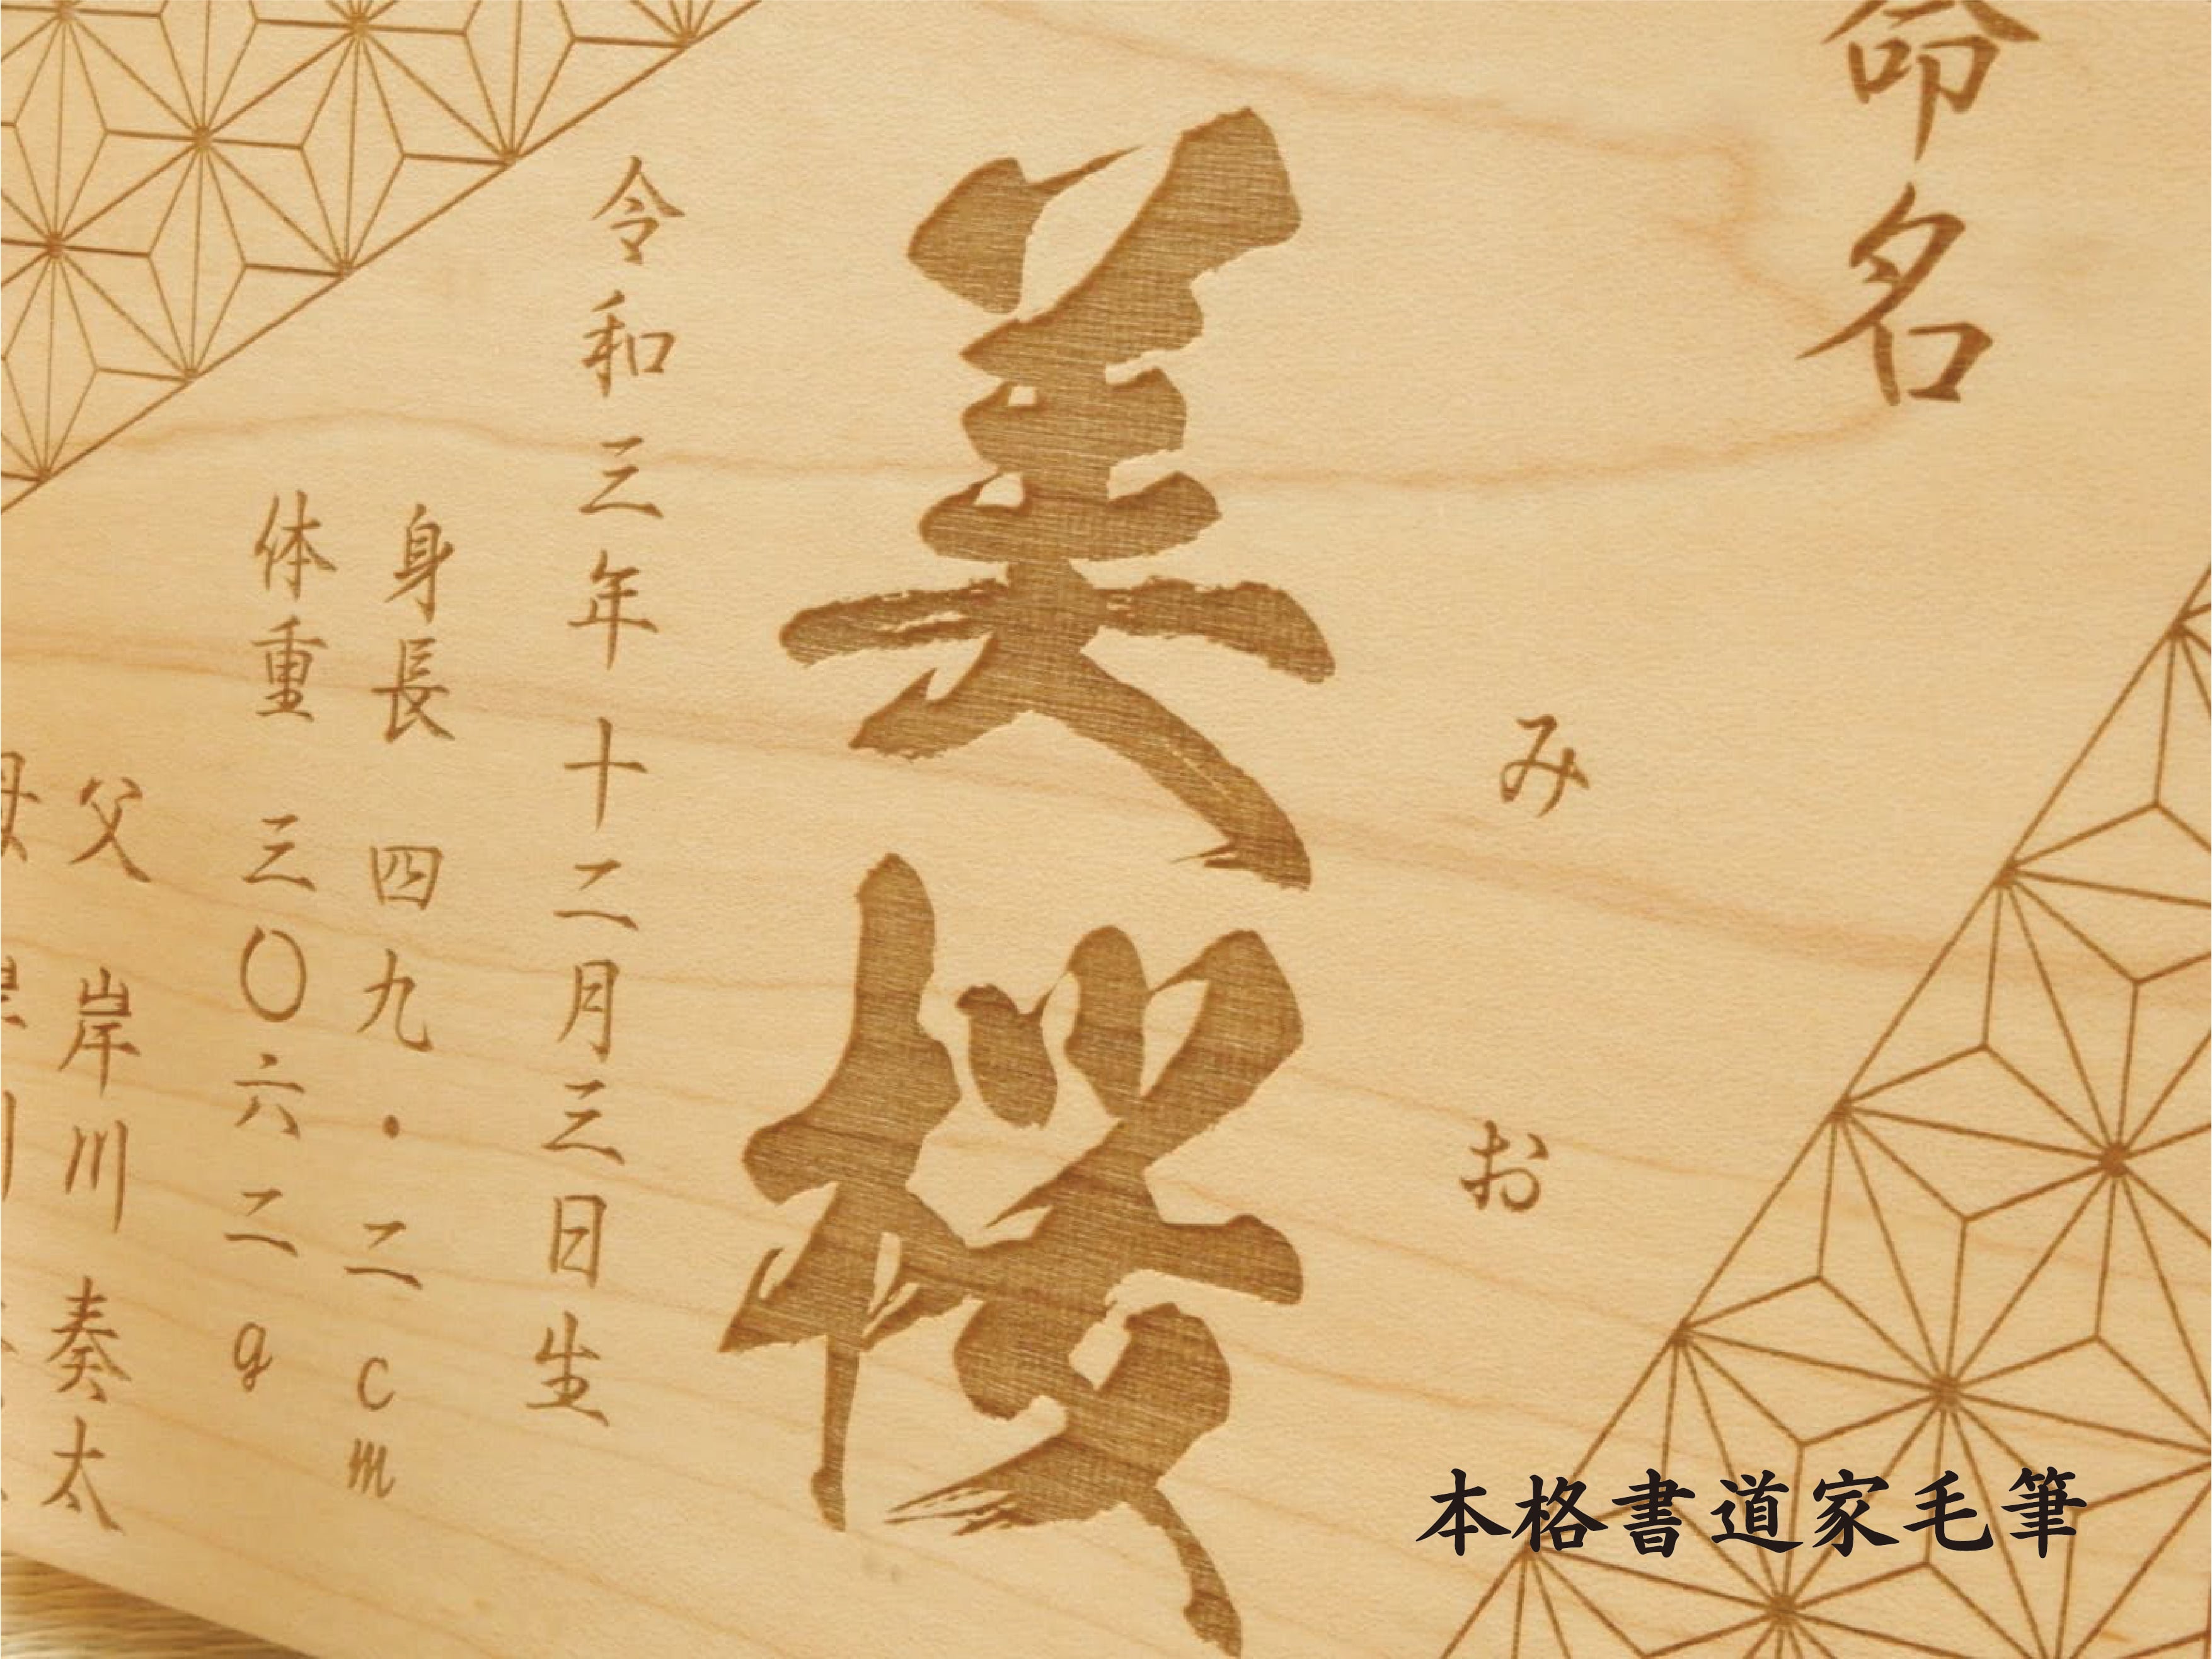 命名
みお
美桜
令和三年十二月三日生
身長 四九・二cm
体重 三〇六二g
父 岸川 奏太
本格書道家毛筆